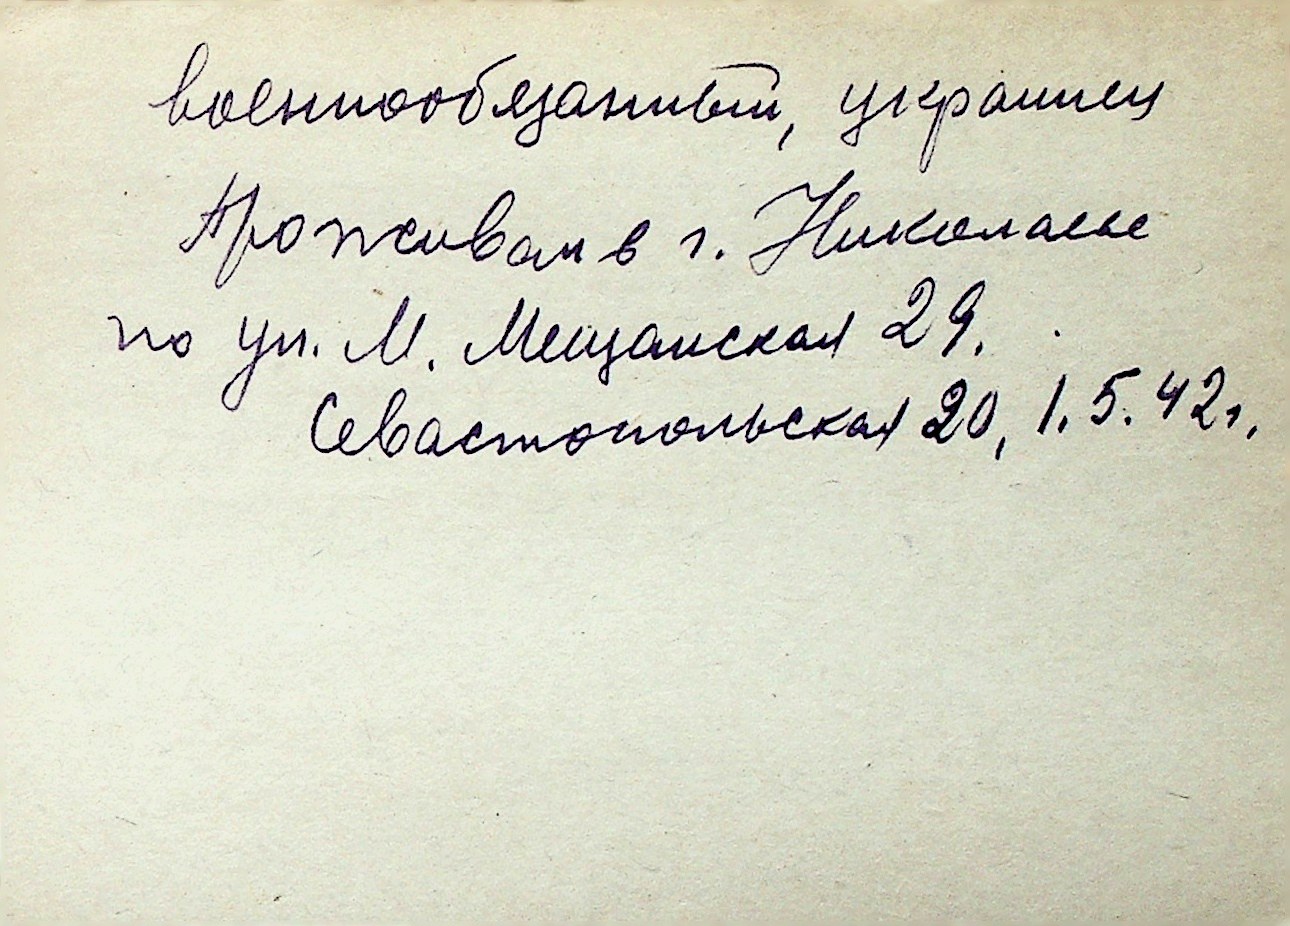 военнообязанный, украинец
Проживал в г. Николаеве
по ул. М. Мещанская 29.
Севастопольская 20, 1.5.42г.